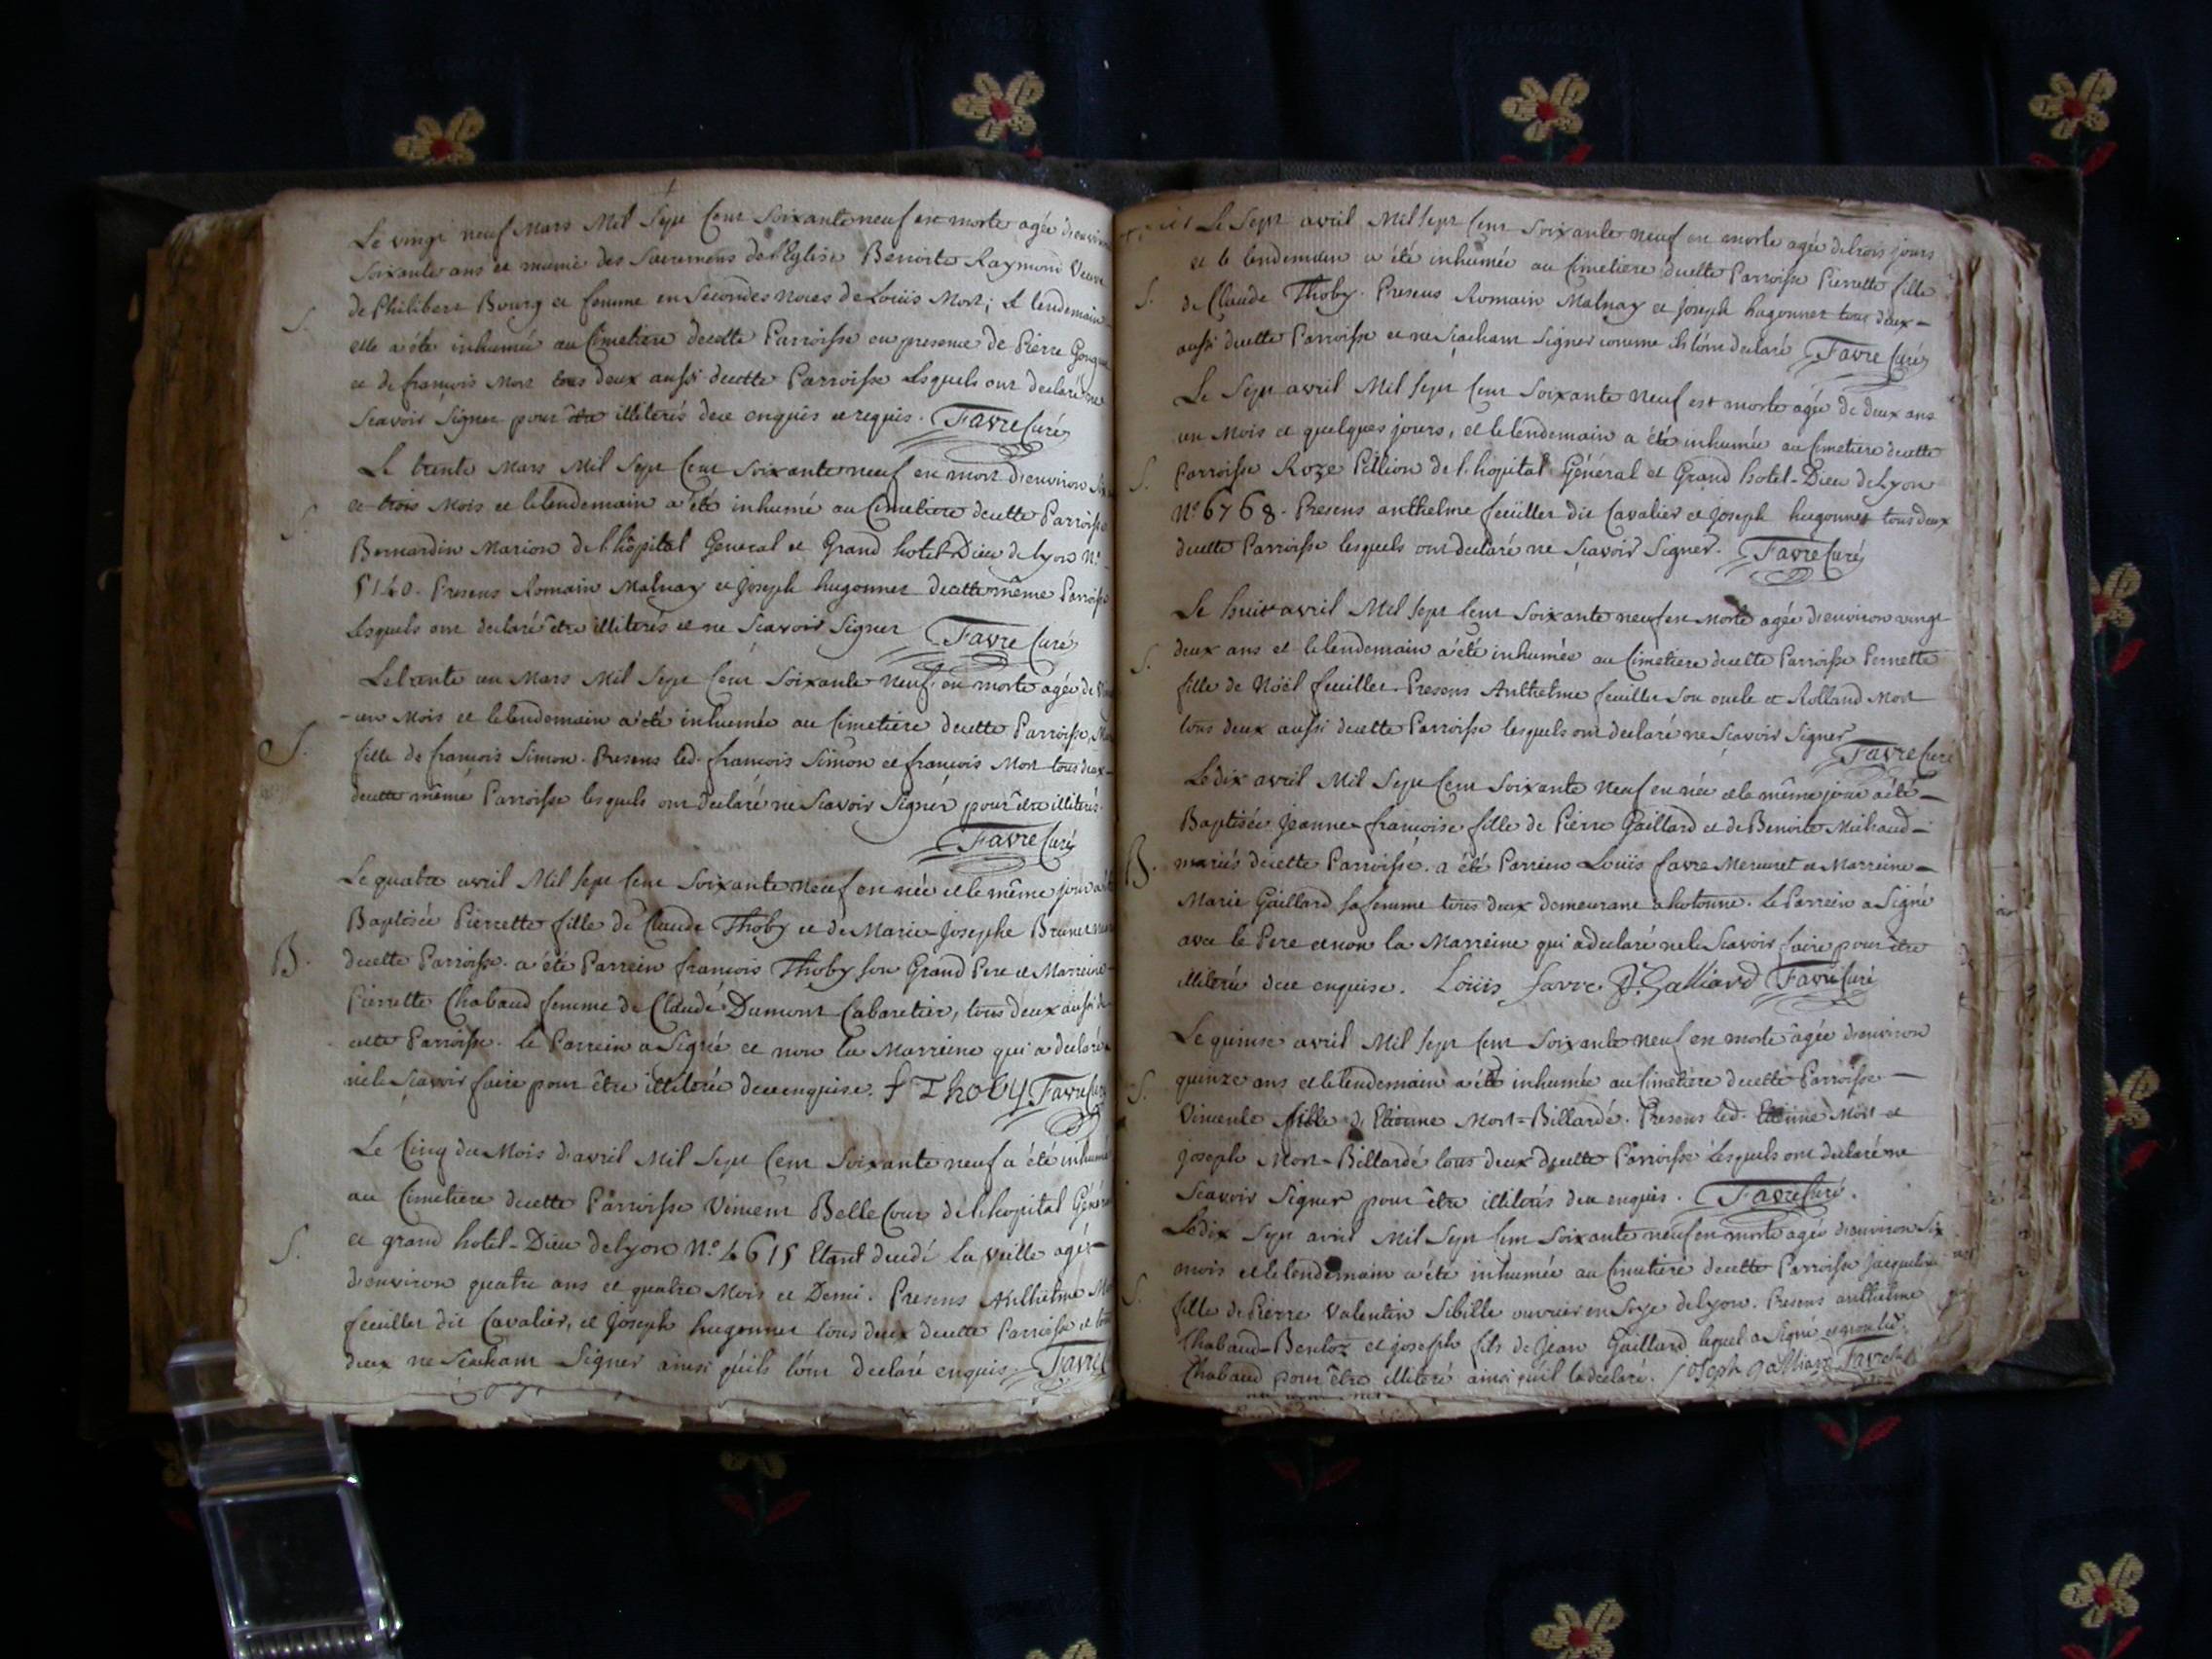 Le vingt neuf Mars Mil Sept Cent Soixante neuf est morte agée d'environ
Soixante ans et munie des Sacremens de l'Eglise Benoite Raymond Veuve
S. de Philibert Bourg et femme en Secondes noces de Louis Mort; Le lendemain
elle a été inhumée au Cimetiere decette Parroisse en presence de Pierre
et de françois Mort tous deux aussi decette Parroisse Lesquels ont declaré ne
Scavoir Signer pour être illiterés dece enquis et requis. Favre Curé
Le trente Mars Mil Sept Cent Soixante neuf est mort d'environ
S. et trois Mois et le lendemain a été inhumé au Cimetiere decette Parroisse
Bernardin Marion de l'hôpital General et Grand hotel-Dieu de Lyon N°
5140. Presens Romain Malnay et Joseph hugonnet decette même Parroisse
Lesquels ont declaré être illiterés et ne Scavoir Signer Favre Curé
Le trente un Mars Mil Sept Cent Soixante Neuf est morte agée de
un Mois et le lendemain a été inhumée au Cimetiere decette Parroisse,
S. fille de françois Simon. Presens led. françois Simon et françois Mort tous deux
decette même Parroisse lesquels ont declaré ne Scavoir Signer pour être illiterés.
Favre Curé
Le quatre avril Mil Sept Cent Soixante neuf est née et le même jour a été
Baptisée Pierrette fille de Claude Thoby et de Marie-Josephe Brunet
B. decette Parroisse. a été Parrein françois Thoby son Grand Pere et Marreine
Pierrette Chabaud femme de Claude Dumont Cabaretier, tous deux aussi de
cette Parroisse. le Parrein a Signé et non la Marreine qui a declaré
nele Scavoir faire pour être illiterée dece enquise. f Thoby Favre Curé
Le Cinq du Mois d'avril Mil Sept Cent Soixante neuf a été inhumé
au Cimetiere decette Parroisse Vincent BelleCour de l'hopital Général
S. et grand hotel-Dieu de Lyon N° 4615 Etant decedé la veille agé
d'environ quatre ans et quatre Mois et Demi. Presens Anthelme
feuillet dit Cavalier, et Joseph hugonnet tous deux decette Parroisse et tous
deux ne Scachant Signer ainsi qu'ils l'ont declaré enquis. Favre
Le Sept avril Mil Sept Cent Soixante neuf est morte agée de trois jours
et le lendemain a été inhumée au Cimetiere decette Parroisse Pierrette fille
S. de Claude Thoby. Presens Romain Malnay et Joseph hugonnet tous deux
aussi decette Parroisse et ne Scachant Signer comme ils l'ont declaré Favre Curé
Le Sept avril Mil Sept Cent Soixante Neuf est morte agée de deux ans
un Mois et quelques jours, et le lendemain a été inhumée au Cimetiere decette
S. Parroisse Roze Pillion de l'hopital Général et Grand hotel-Dieu de Lyon
N° 6768. Presens anthelme feuillet dit Cavalier et Joseph hugonnet tous deux
decette Parroisse lesquels ont declaré ne Scavoir Signer. Favre Curé
Le huit avril Mil Sept Cent Soixante neuf est Morte agée d'environ vingt
S. deux ans et le lendemain a été inhumée au Cimetiere decette Parroisse Pernette
fille de Noël feuillet. Presens Anthelme feuillet Son oncle et Rolland Mort
tous deux aussi decette Parroisse lesquels ont declaré ne Scavoir Signer
Favre Curé
Le dix avril Mil Sept Cent Soixante Neuf est née et le même jour a été
Baptisée Jeanne-françoise fille de Pierre Gaillard et de Benoite Michaud
B. mariés decette Parroisse. a été Parrein Louis favre Mercuret et Marreine
Marie Gaillard sa femme tous deux demeurant a hotonne. Le Parrein a Signé
avec le Pere et non la Marreine qui a declaré nele Scavoir faire pour être
illiterée dece enquise. Louis favre P. Galliard Favre Curé
Le quinze avril Mil Sept Cent Soixante Neuf est morte agée d'environ
S. quinze ans et le lendemain a été inhumée au Cimetiere decette Parroisse
Vincente fille de Etienne Mort=Billardé. Presens led. Etienne Mort et
Joseph Mort-Billardé tous deux decette Parroisse Lesquels ont declaré ne
Scavoir Signer pour être illiterés dece enquis. Favre Curé.
Le dix Sept avril Mil Sept Cent Soixante neuf est morte agée d'environ Six
mois et le lendemain a été inhumée au Cimetiere decette Parroisse Jacqueline
S. fille de Pierre Valentin Sibille ouvrier en Soye de Lyon. Presens anthelme
Chabaud-Benloz et Joseph fils de Jean Gaillard lequel a Signé et non led.
Chabaud pour être illiteré ainsi qu'il l'a declaré. Joseph Galliard Favre